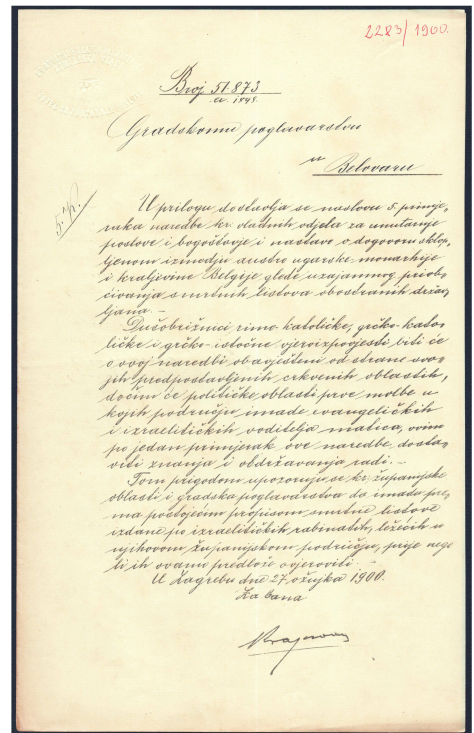 2283/1900.
Broj 51.873
ex 1898.
Gradskomu poglavarstvu
u
Belovaru
U prilogu dostavlja se naslovu 5. primje-
raka naredbe kr. vladnih odjela za unutarnje
poslove i bogoštovje i nastavu o dogovoru sklop-
ljenom izmedju austro ugarske monarhije
i kraljevine Belgije glede uzajamnog priob-
ćivanja smrtnih listova obostranih držav-
ljana. -
Dušobrižnici rimo katoličke, grčko-kato-
ličke i grčko-istočne vjeroizpovjesti biti će
o ovoj naredbi obaviešteni od strane svo-
jih predpostavljenih crkvenih oblastih,
dočim će političke oblasti prve molbe u
kojih području imade evangeličkih
i izraelitičkih voditelja matica, ovim
po jedan primjerak ove naredbe, dosta-
viti znanja i obdržavanja radi. -
Tom prigodom upozoruju se kr. županijske
oblasti i gradska poglavarstva da imadu pre-
ma postojećim propisom smrtne listove
izdane po izraelitičkih rabinatih, ležećih u
njihovom županijskom području, prije nego
li ih ovamo predlože ovjeroviti -
U Zagrebu dne 27. ožujka 1900.
Za bana